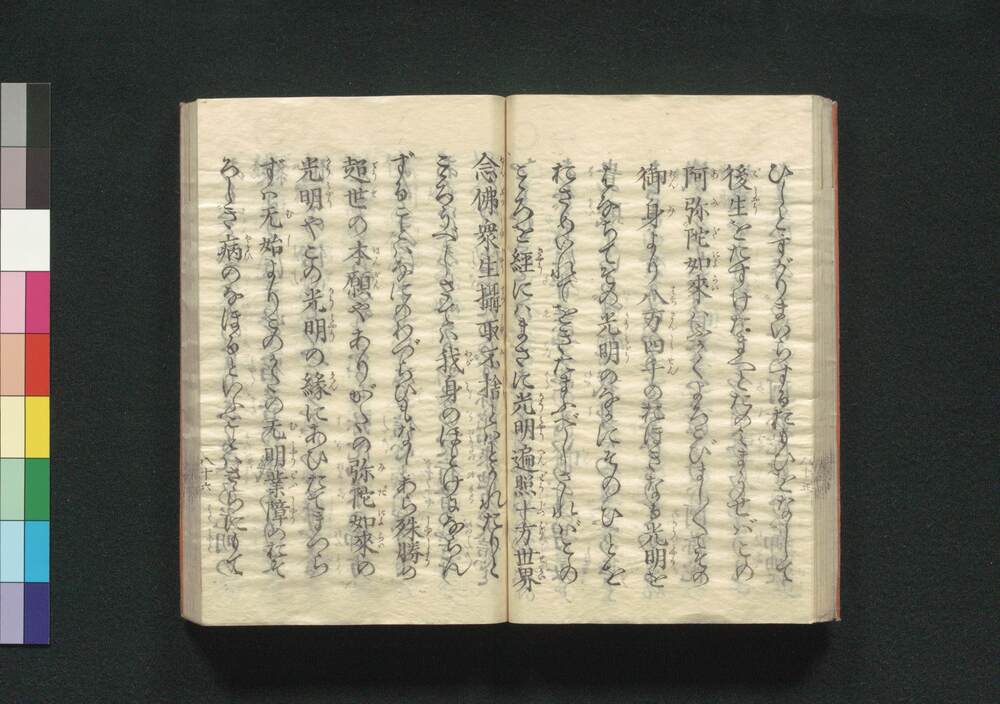 ひしとすがりまいらするおもひをなして
後生をたすけたまへとたのみまうせばこの
阿弥陀如來はふかくよろこびましましてその
御身より八万四千のおほきなる光明を
はなちてその光明のなかにそのひとを
おさめいれてをきたまふべしさればこの
こころを經にハまさに光明遍照十方世界
念佛衆生攝取不捨とハとかれたりと
こころうべしさてハ我身のほとけにならん
ずることハなにのわづらひもなしあら殊勝の
超世の本願やありがたの弥陀如來の
光明やこの光明の緣にあひたてまつら
ずハ无始よりこのかたの无明業障のおそ
ろしき病のなほるといふことハさらにもて
八十六